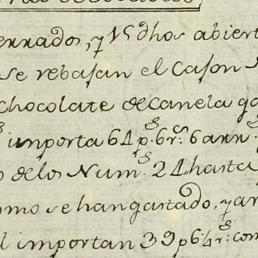 errado, y 15 dhos abiert
se rebajan el Cajon
chocolate de canela
importa 64 p.s 6 r.s 6
o delos Num.s 24 hasta
omo se han gastado, y
importan 39 p.s 6½ r.s com